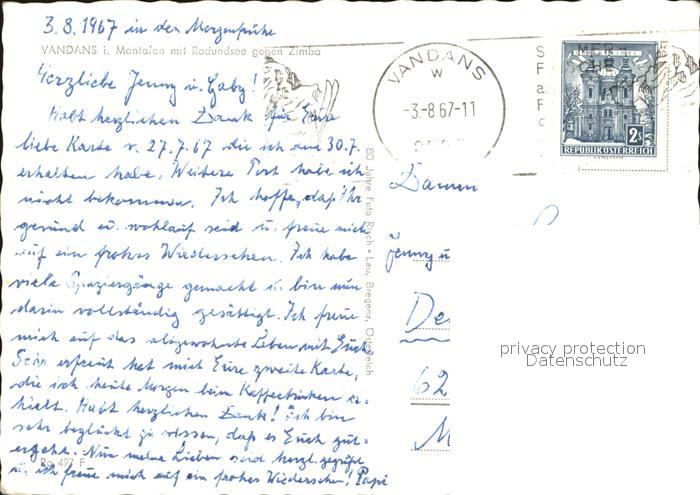 3.8.1967 in der Morgenfrühe
VANDANS i. Montafon mit Rodundsee gegen Zimba
Herzliebe Jenny u. Gaby!
Habt herzlichen Dank für Eure
liebe Karte v. 27.7.67 die ich am 30.7.
erhalten habe. Weitere Post habe ich
nicht bekommen. Ich hoffe, daß Ihr
gesund u. wohlauf seid u. freue mich
auf ein frohes Wiedersehen. Ich habe
viele Spaziergänge gemacht u. bin nun
darin vollständig gesättigt. Ich freue
mich auf das altgewohnte Leben mit Euch.
Sehr erfreut hat mich Eure zweite Karte,
die ich heute Morgen beim Kaffeetrinken er-
hielt. Habt herzlichen Dank! Ich bin
sehr beglückt zu wissen, daß es Euch gut
ergeht. Nun meine Lieben seid herzl. gegrüßt
u. ich freue mich auf ein frohes Wiedersehen! Papi
Ro 497 F
80 Jahre Foto Risch-Lau, Bregenz, Österreich
VANDANS
W
-3.-8.67-11
2 S
REPUBLIK ÖSTERREICH
Damen
Jenny u
De
62
M
privacy protection
Datenschutz